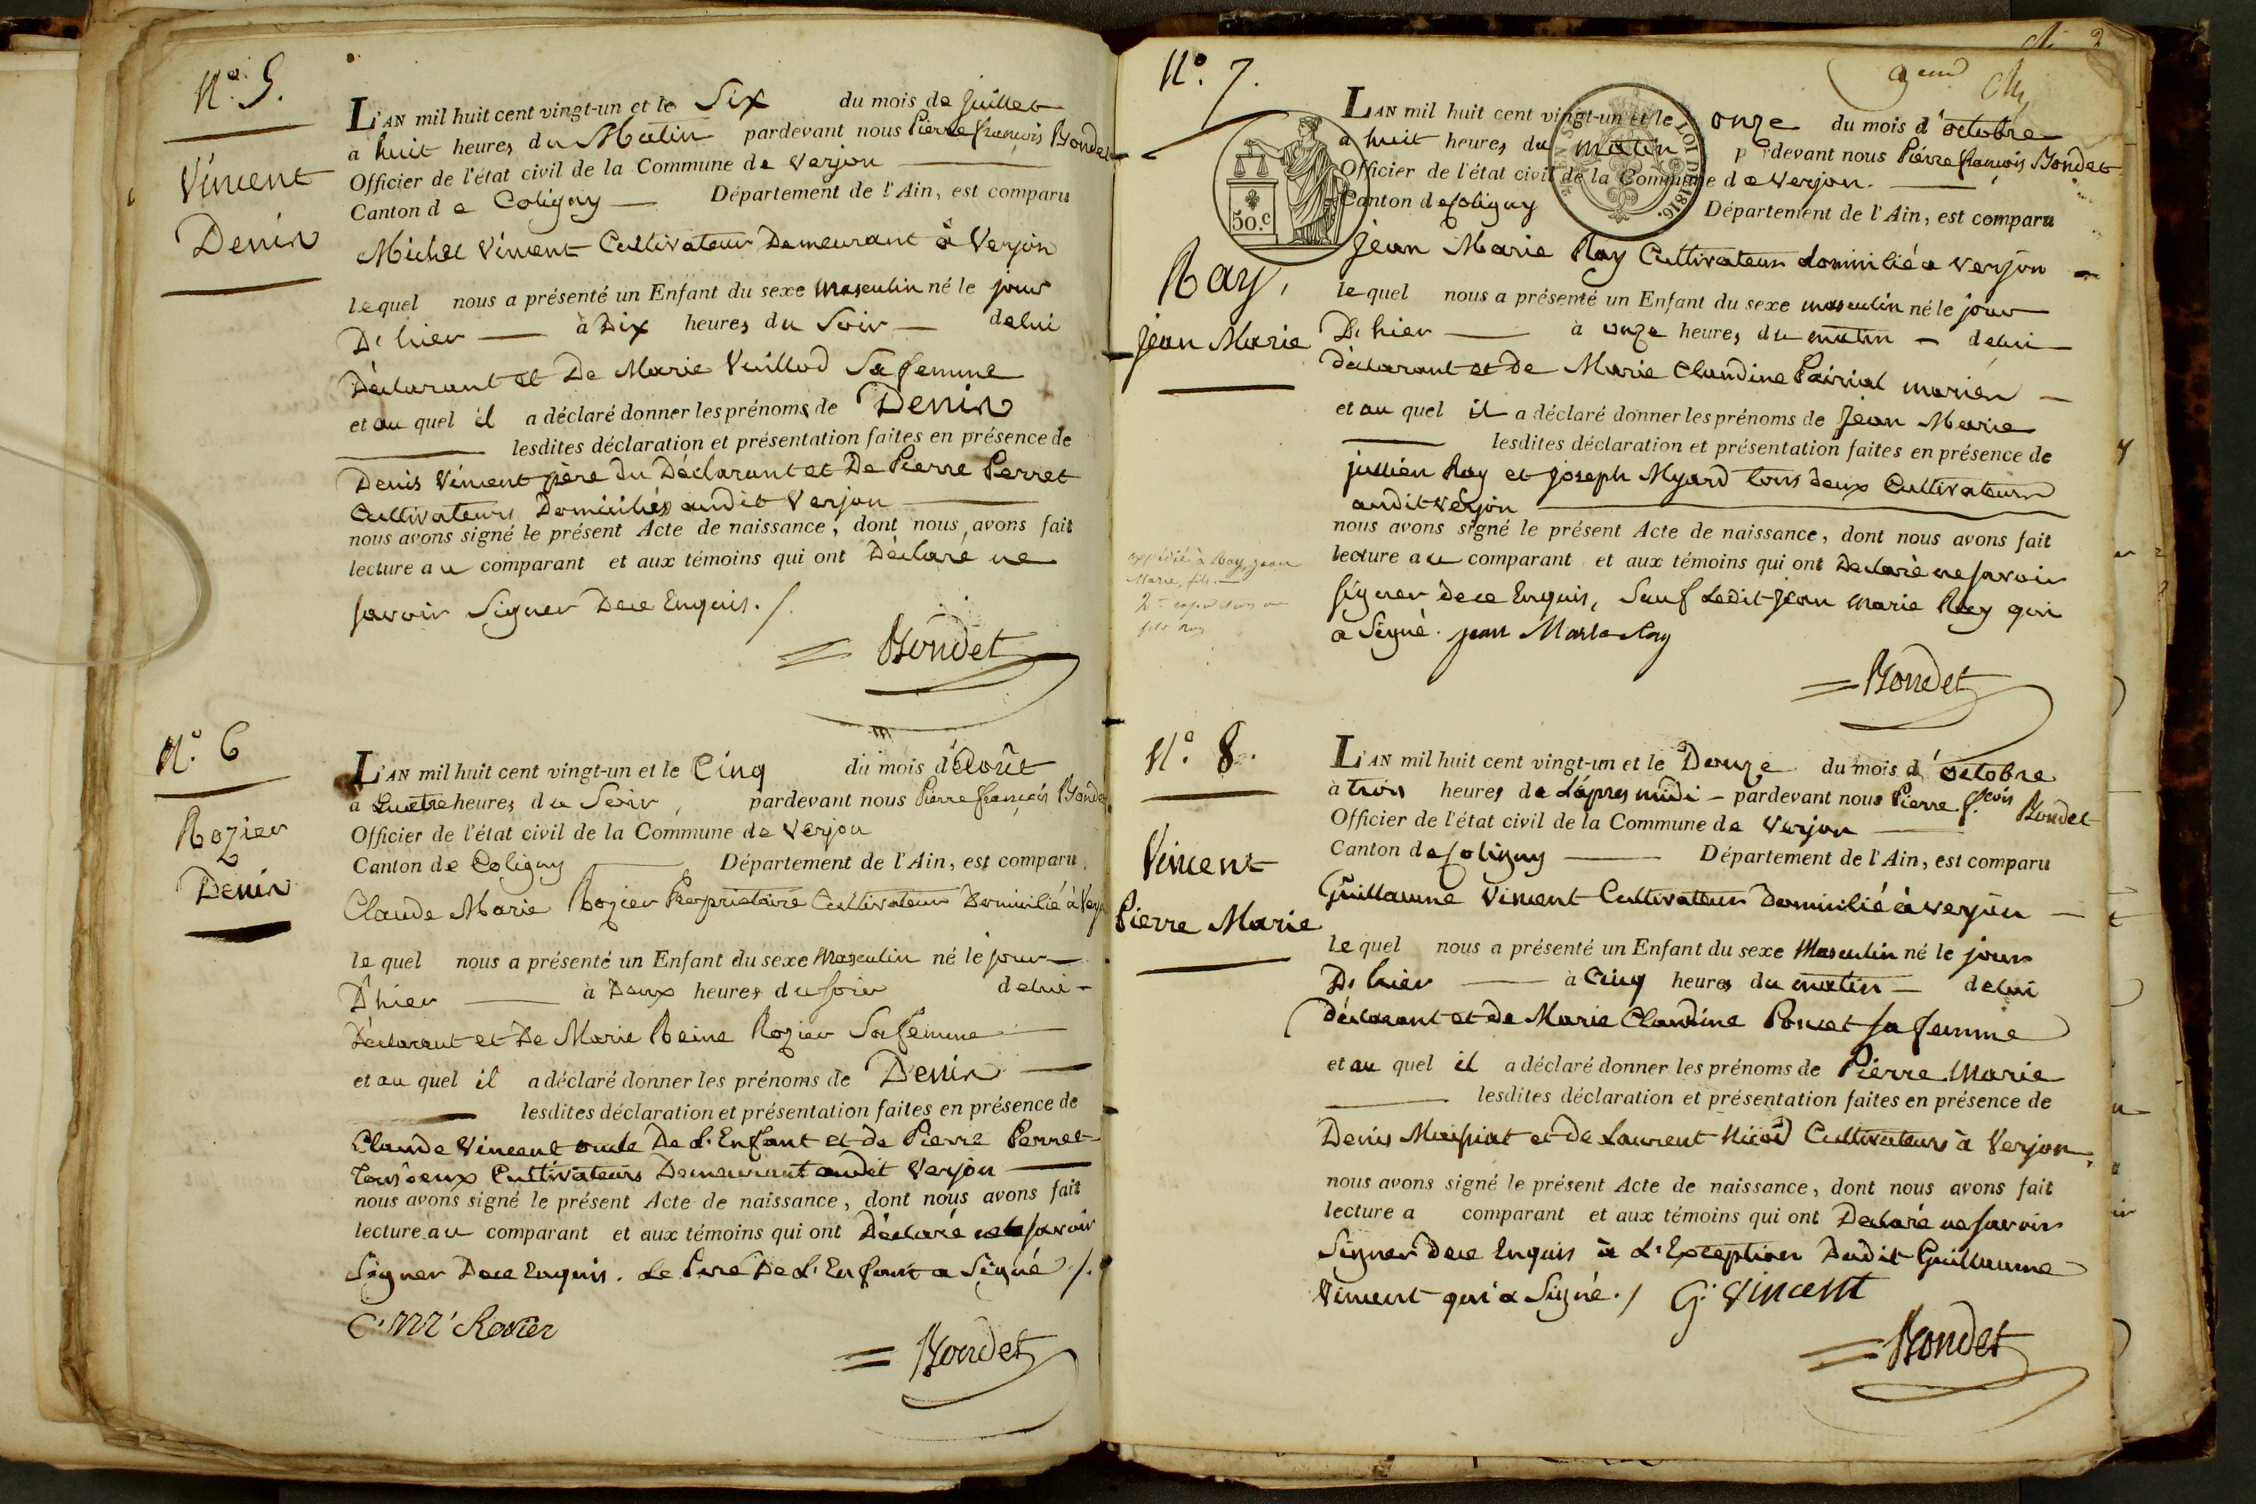 N.o 5.
Vincent
Denis
L'AN mil huit cent vingt-un et le Six du mois de juillet
à huit heures du Matin pardevant nous Pierre françois Bondet
Officier de l'état civil de la Commune de Verjon
Canton de Coligny Département de l'Ain, est comparu
Michel Vincent Cultivateur Demeurant à Verjon
lequel nous a présenté un Enfant du sexe masculin né le jour
D'hier à Dix heures du Soir de lui
Déclarant et De Marie Vuillod Sa femme
et au quel il a déclaré donner les prénoms de Denis
lesdites déclaration et présentation faites en présence de
Denis Vincent père du Déclarant et De Pierre Perret
Cultivateurs Domiciliés audit Verjon
nous avons signé le présent Acte de naissance, dont nous avons fait
lecture au comparant et aux témoins qui ont Déclaré ne
savoir Signer De ce Enquis. /.
Bondet
N.o 6
Rozier
Denis
L'AN mil huit cent vingt-un et le Cinq du mois d'Août
à heures du Soir, pardevant nous Pierre françois Bondet
Officier de l'état civil de la Commune de Verjon
Canton de Coligny Département de l'Ain, est comparu
Claude Marie Rozier Propriétaire Cultivateur Domicilié à
lequel nous a présenté un Enfant du sexe Masculin né le jour
D'hier à Deux heures du soir de lui
Déclarant et De Marie Reine Rozier Sa femme
et au quel il a déclaré donner les prénoms de Denis
lesdites déclaration et présentation faites en présence de
Claude Vincent oncle De L'Enfant et de Pierre Perret
Tous deux Cultivateurs Demeurant audit Verjon
nous avons signé le présent Acte de naissance, dont nous avons fait
lecture au comparant et aux témoins qui ont Déclaré ne savoir
Signer De ce Enquis. Le Pere De L'Enfant a Signé /.
C. M. Rozier
Bondet
2
N.o 7.
50.c
LOI DE 1816.
Ray,
jean Marie
L'AN mil huit cent vingt-un et le onze du mois d'octobre
à huit heures du matin pardevant nous Pierre françois Bondet
Officier de l'état civil de la Commune de Verjon.
Canton de Coligny Département de l'Ain, est comparu
jean Marie Ray Cultivateur domicilié a Verjon
lequel nous a présenté un Enfant du sexe masculin né le jour
D'hier à onze heures du matin de lui
déclarant et de Marie Claudine mariés
et au quel il a déclaré donner les prénoms de jean Marie
lesdites déclaration et présentation faites en présence de
jullien Ray et joseph Myard tous deux Cultivateurs
audit Verjon
nous avons signé le présent Acte de naissance, dont nous avons fait
lecture au comparant et aux témoins qui ont Declaré ne savoir
signer de ce Enquis, Sauf Ledit jean Marie Ray qui
a Signé. jean Marie Ray
Bondet
N.o 8.
Vincent
Pierre Marie
L'AN mil huit cent vingt-un et le Douze du mois d'octobre
à trois heures de L'après midi pardevant nous Pierre f.cois Bondet
Officier de l'état civil de la Commune de Verjon
Canton de Coligny Département de l'Ain, est comparu
Guillaume Vincent Cultivateur Domicilié à Verjon
lequel nous a présenté un Enfant du sexe Masculin né le jour
D'hier à Cinq heures du matin de lui
déclarant et de Marie Claudine Poncet sa femme
et au quel il a déclaré donner les prénoms de Pierre Marie
lesdites déclaration et présentation faites en présence de
Denis et de Laurent Nicod Cultivateurs à Verjon,
nous avons signé le présent Acte de naissance, dont nous avons fait
lecture a comparant et aux témoins qui ont Declaré ne savoir
Signer De ce Enquis à L'Exception Dudit Guillaume
Vincent qui a Signé. / G. Vincent
Bondet